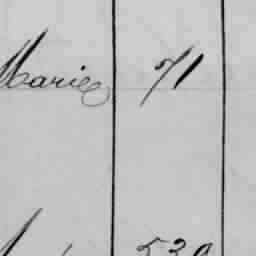 Marie 71
539